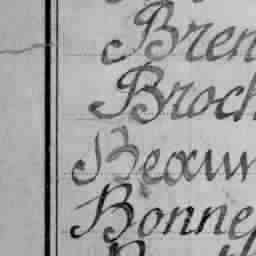 Bren
Broch
Beaum
Bonne